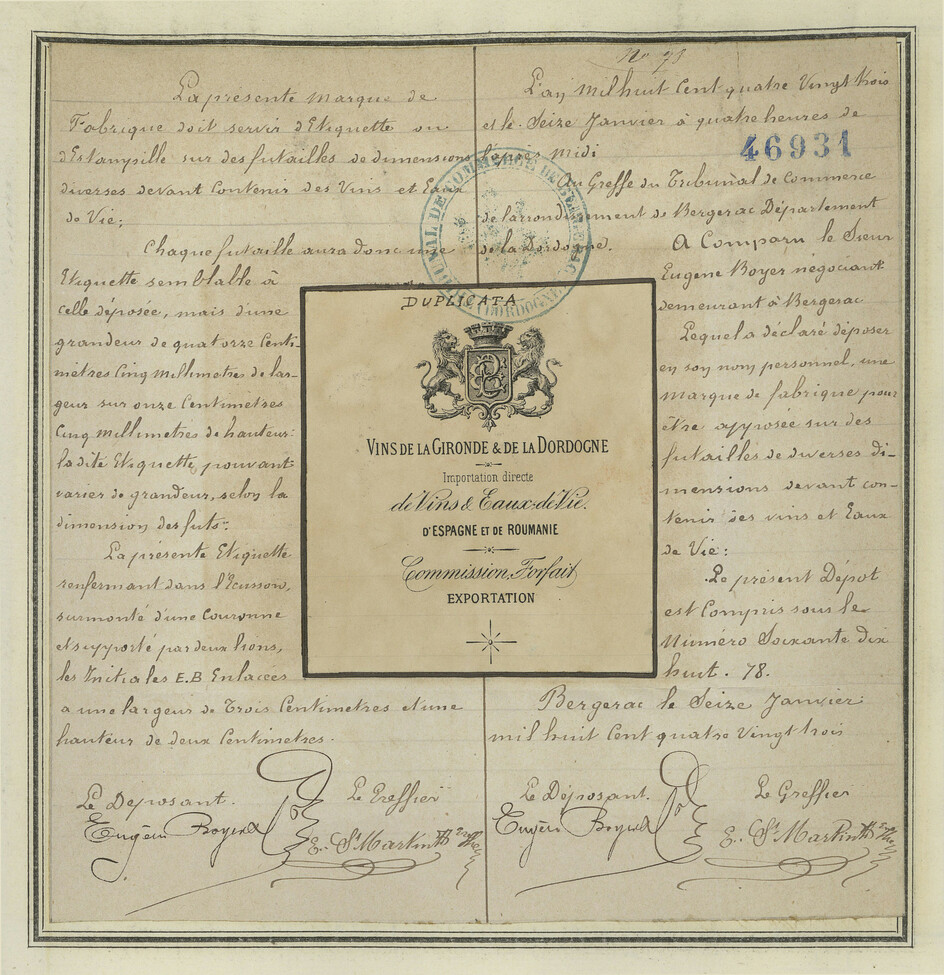 La présente Marque de
Fabrique doit servir d'Etiquette ou
d'Estampille sur des futailles de dimensions
diverses devant Contenir des Vins et Eaux
de Vie;
Chaque futaille aura donc une
Etiquette semblable à
celle déposée, mais d'une
grandeur de quatorze Centi-
mètres Cinq Millimètres de lar-
geur sur onze Centimètres
Cinq Millimètres de hauteur:
la dite Etiquette pouvant
varier de grandeur, selon la
dimension des futs:
La présente Etiquette
renfermant dans l'Ecusson,
surmonté d'une Couronne
et supporté par deux lions,
les Initiales E.B Enlacées
a une largeur de Trois Centimètres et une
hauteur de deux Centimètres.
Le Déposant.
Le Greffier
Eugène Boyer
E. St Martin
DUPLICATA
VINS DE LA GIRONDE & DE LA DORDOGNE
Importation directe
de Vins & Eaux-de-Vie.
D'ESPAGNE ET DE ROUMANIE
Commission, Forfait
EXPORTATION
No 78
L'an Mil huit Cent quatre Vingt trois
et le Seize Janvier à quatre heures de
l'après Midi
46931
Au Greffe du Tribunal de Commerce
de l'arrondissement de Bergerac Département
de la Dordogne.
A Comparu le Sieur
Eugène Boyer négociant
demeurant à Bergerac
Lequel a déclaré déposer
en son nom personnel, une
marque de fabrique pour
être apposée sur des
futailles de diverses di-
mensions devant con-
tenir des vins et Eaux
de Vie:
Le présent Dépot
est Compris sous le
Numéro Soixante dix
huit. 78.
Bergerac le Seize Janvier
mil huit Cent quatre Vingt trois
Le Déposant.
Le Greffier
Eugène Boyer
E. St Martin
TRIBUNAL DE COMMERCE DE BERGERAC
(DORDOGNE)